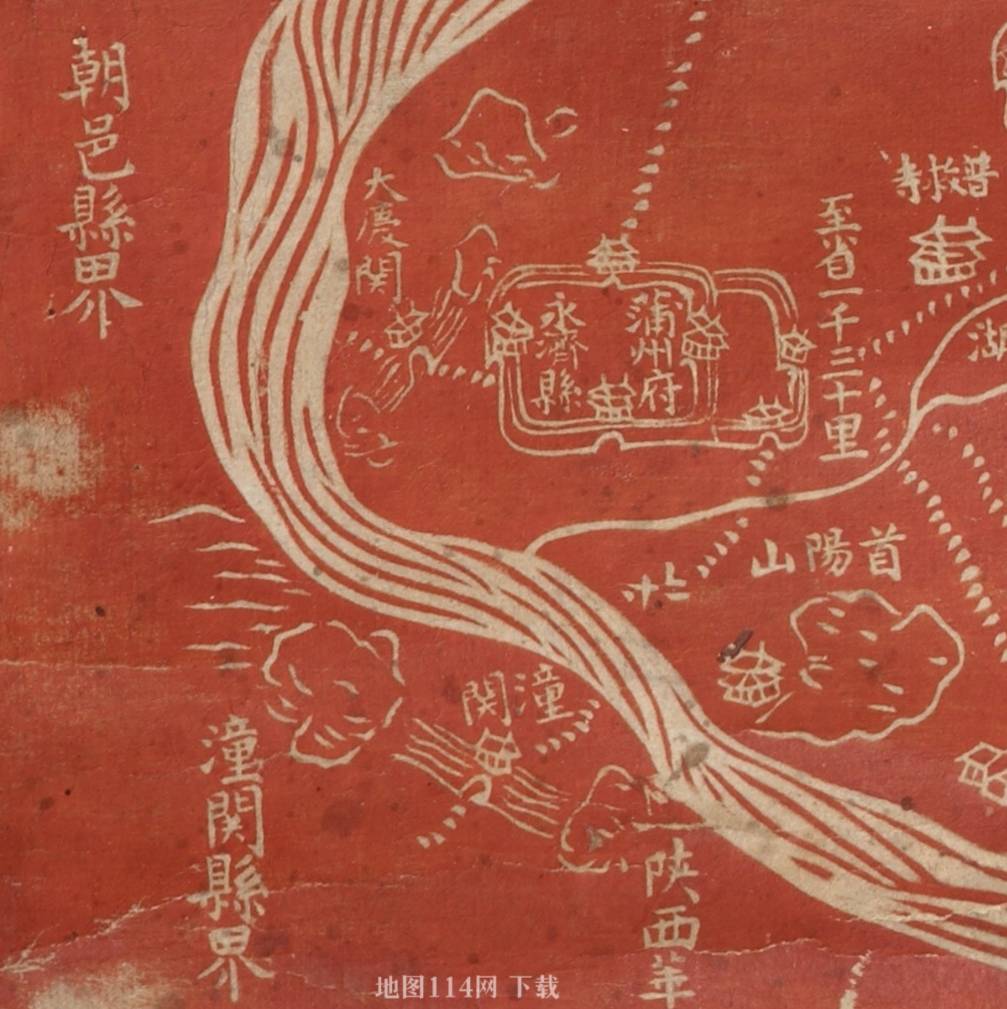 朝邑縣界
大慶関
永濟縣
蒲州府
普救寺
至省一千三十里
湖
首陽山
潼関
潼関縣界
陕西華
地图114网 下载